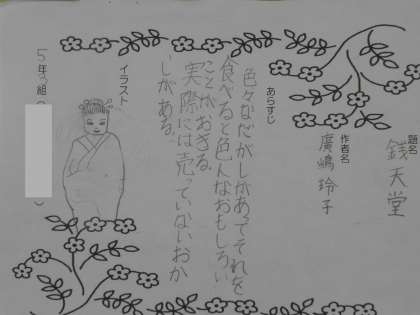 題名
銭天堂
作者名
廣嶋玲子
あらすじ
色々なだがしがあってそれを
食べると色んなおもしろい
ことが、おきる。
実際には売っていないおか
しがある。
イラスト
5年 組（ ）